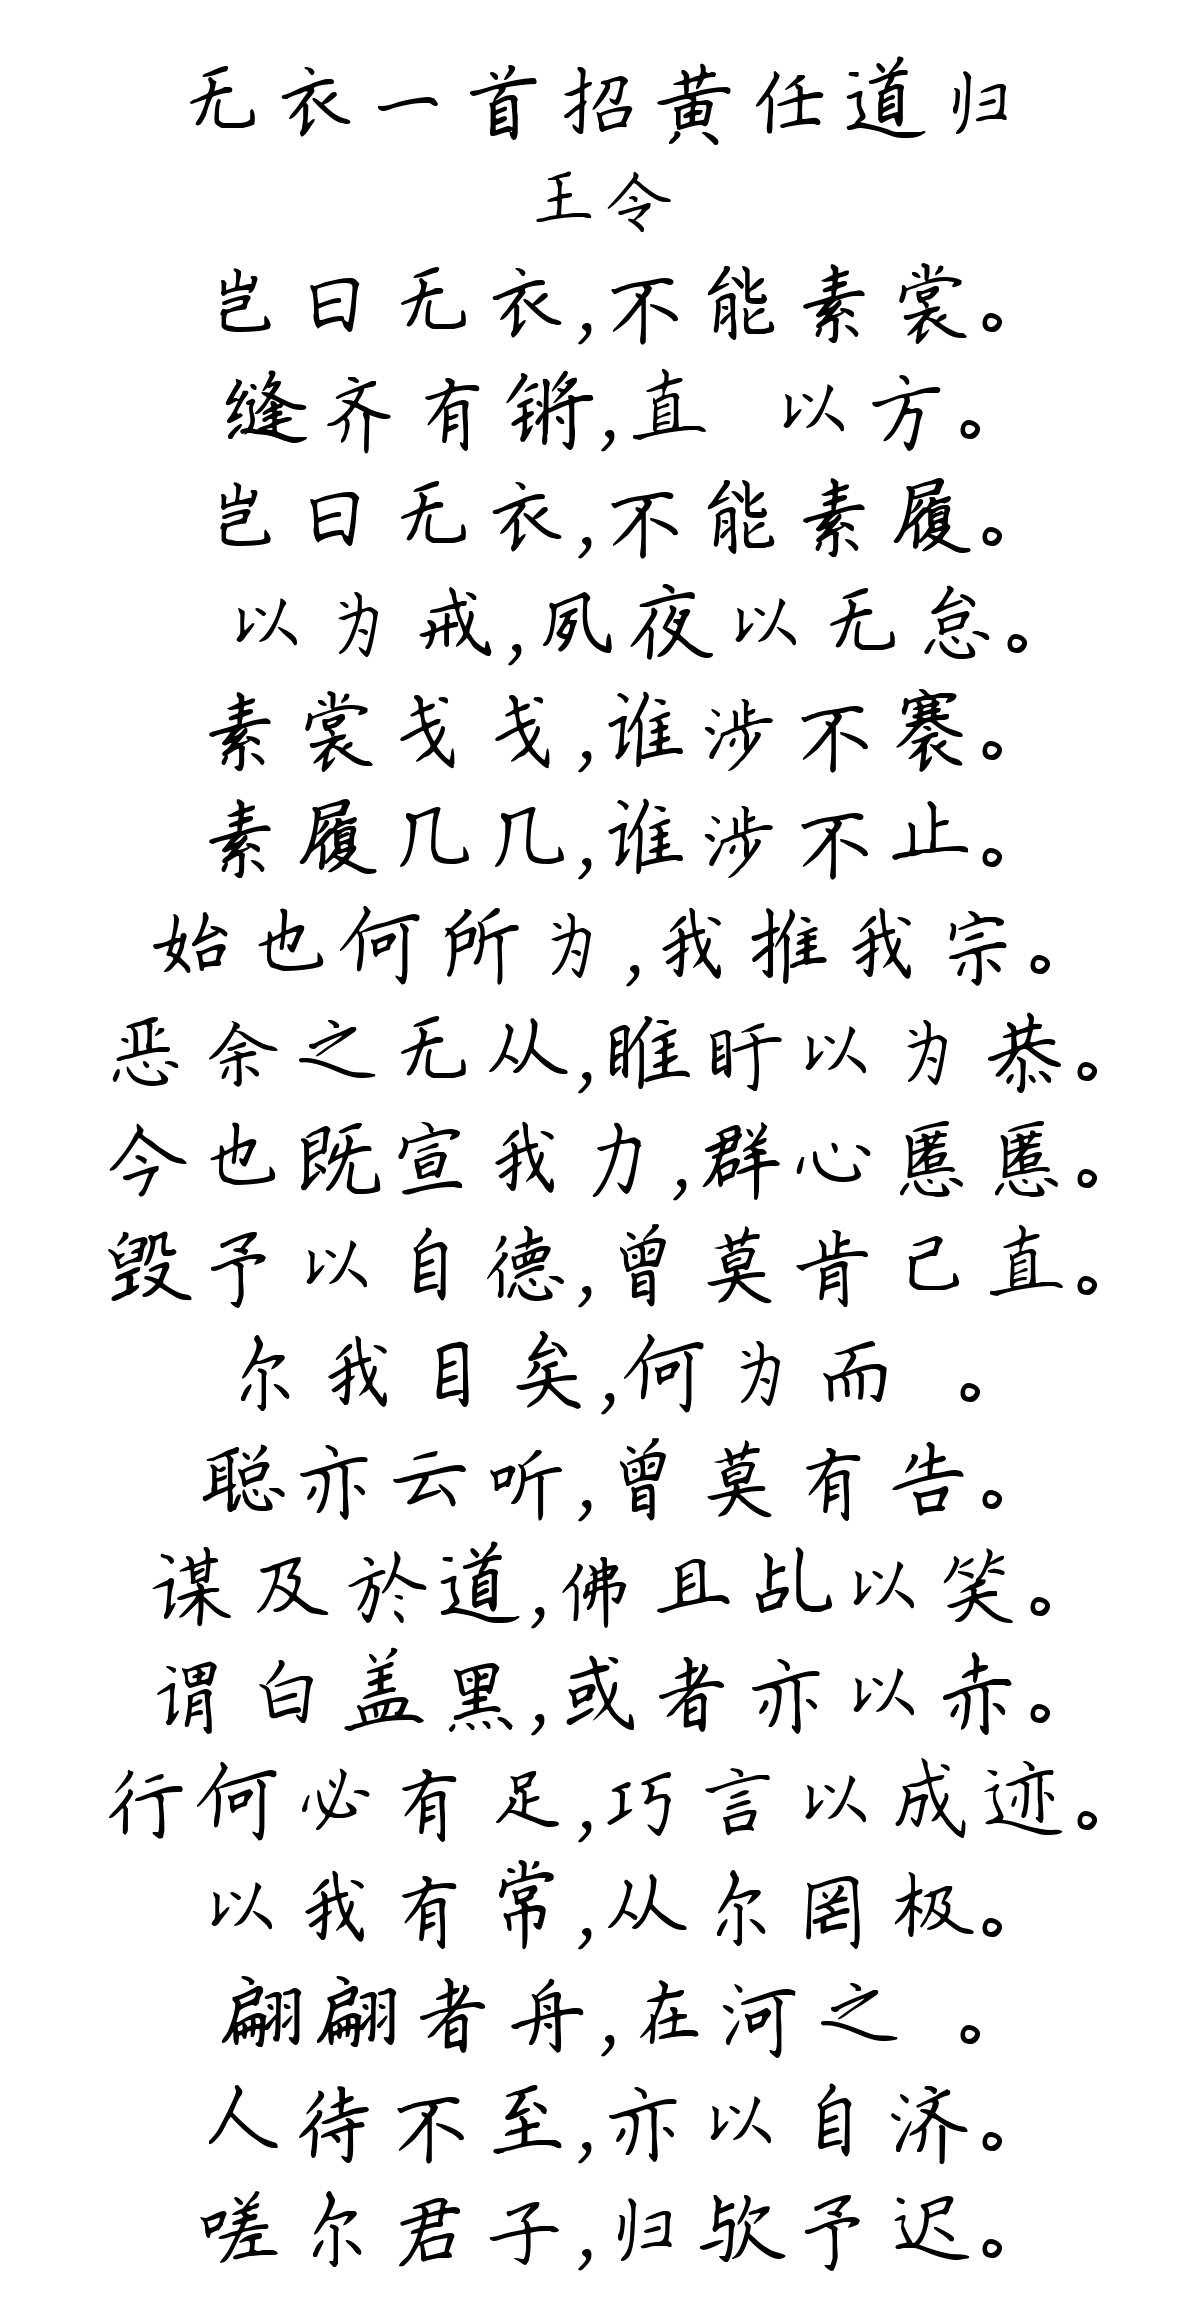 无衣一首招黄任道归
王令
岂曰无衣,不能素裳。
缝齐有锵,直 以方。
岂曰无衣,不能素履。
以为戒,夙夜以无怠。
素裳戋戋,谁涉不褰。
素履几几,谁涉不止。
始也何所为,我推我宗。
恶余之无从,睢盱以为恭。
今也既宣我力,群心慝慝。
毁予以自德,曾莫肯己直。
尔我目矣,何为而 。
聪亦云听,曾莫有告。
谋及於道,佛且乩以笑。
谓白盖黑,或者亦以赤。
行何必有足,巧言以成迹。
以我有常,从尔罔极。
翩翩者舟,在河之 。
人待不至,亦以自济。
嗟尔君子,归欤予迟。